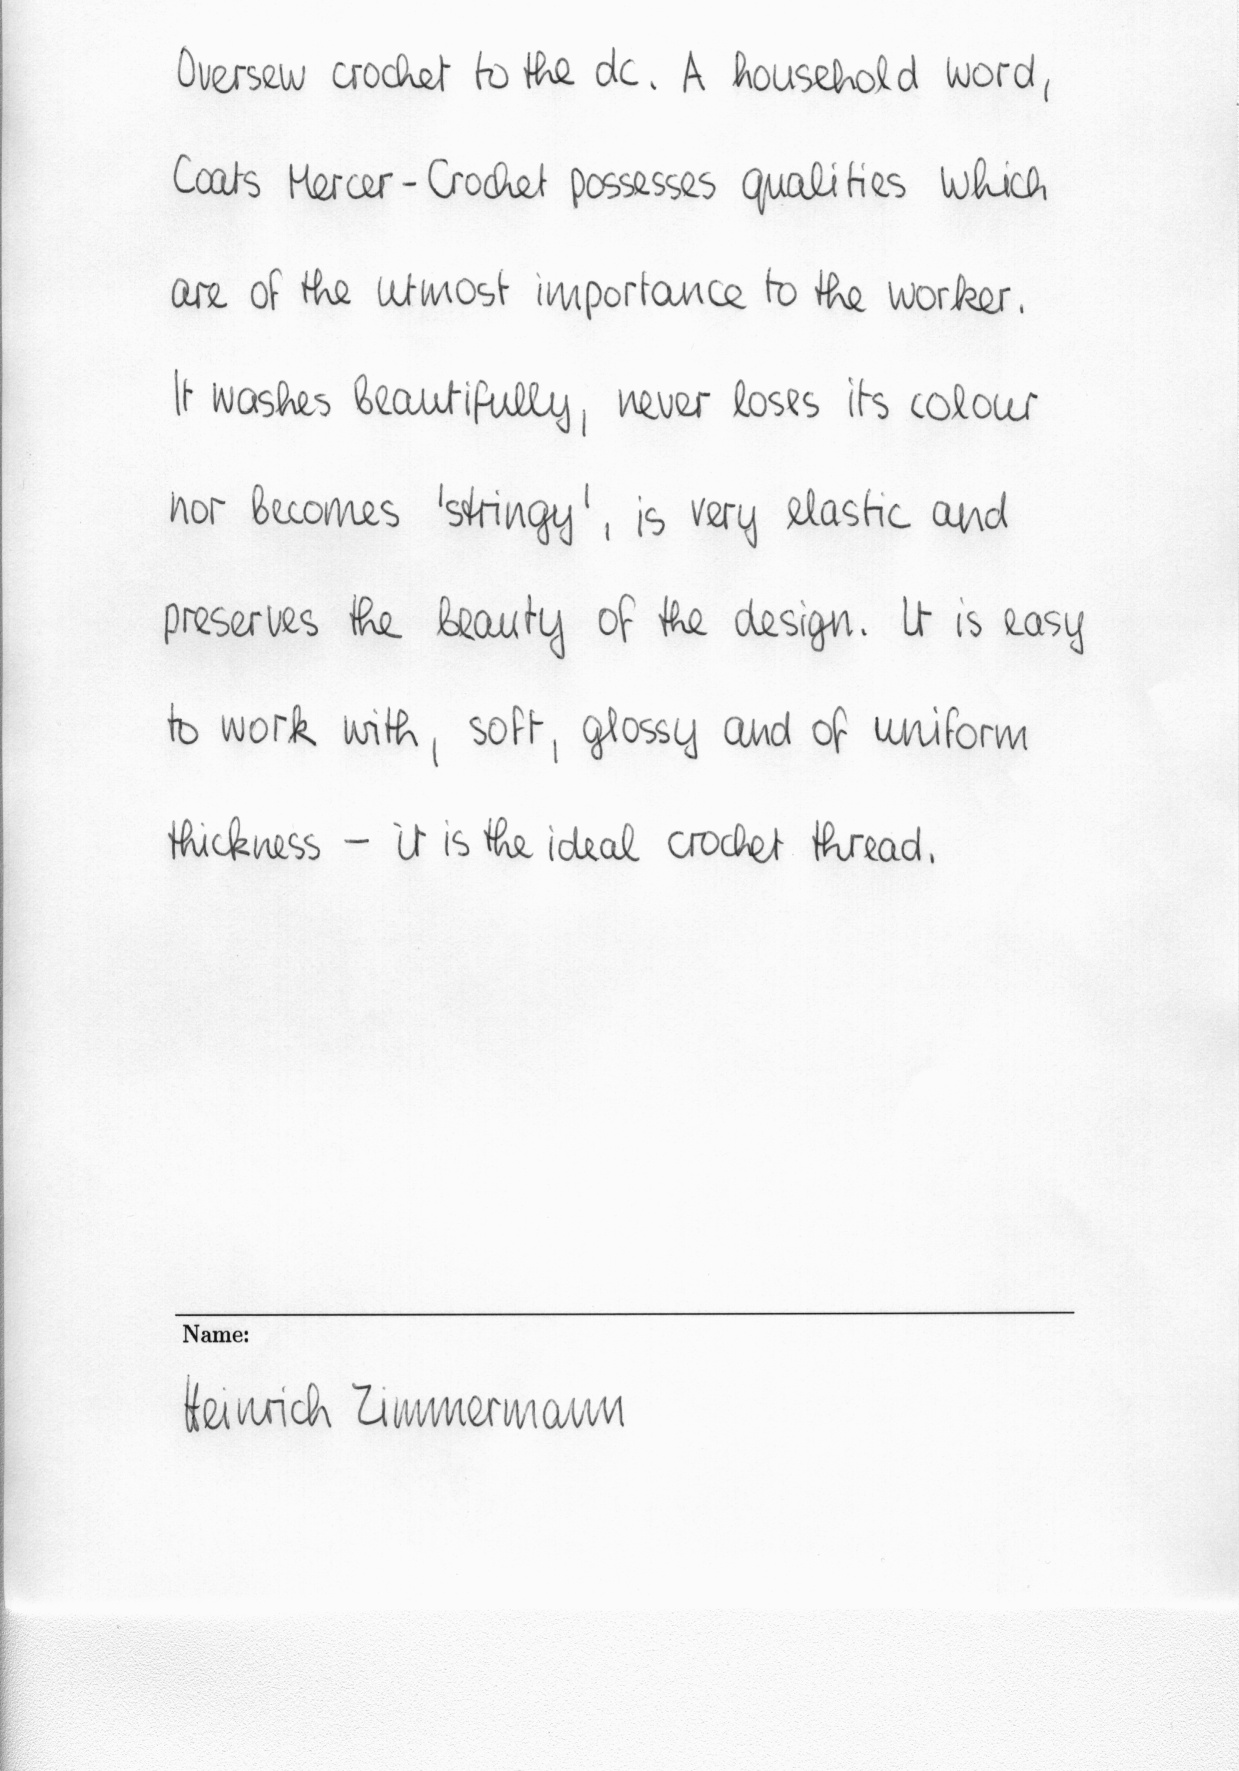 Oversew crochet to the dc. A household word,
Coats Mercer-Crochet possesses qualities which
are of the utmost importance to the worker.
It washes beautifully, never loses its colour
nor becomes 'stringy', is very elastic and
preserves the beauty of the design. It is easy
to work with, soft, glossy and of uniform
thickness - it is the ideal crochet thread.
Name:
Heinrich Zimmermann